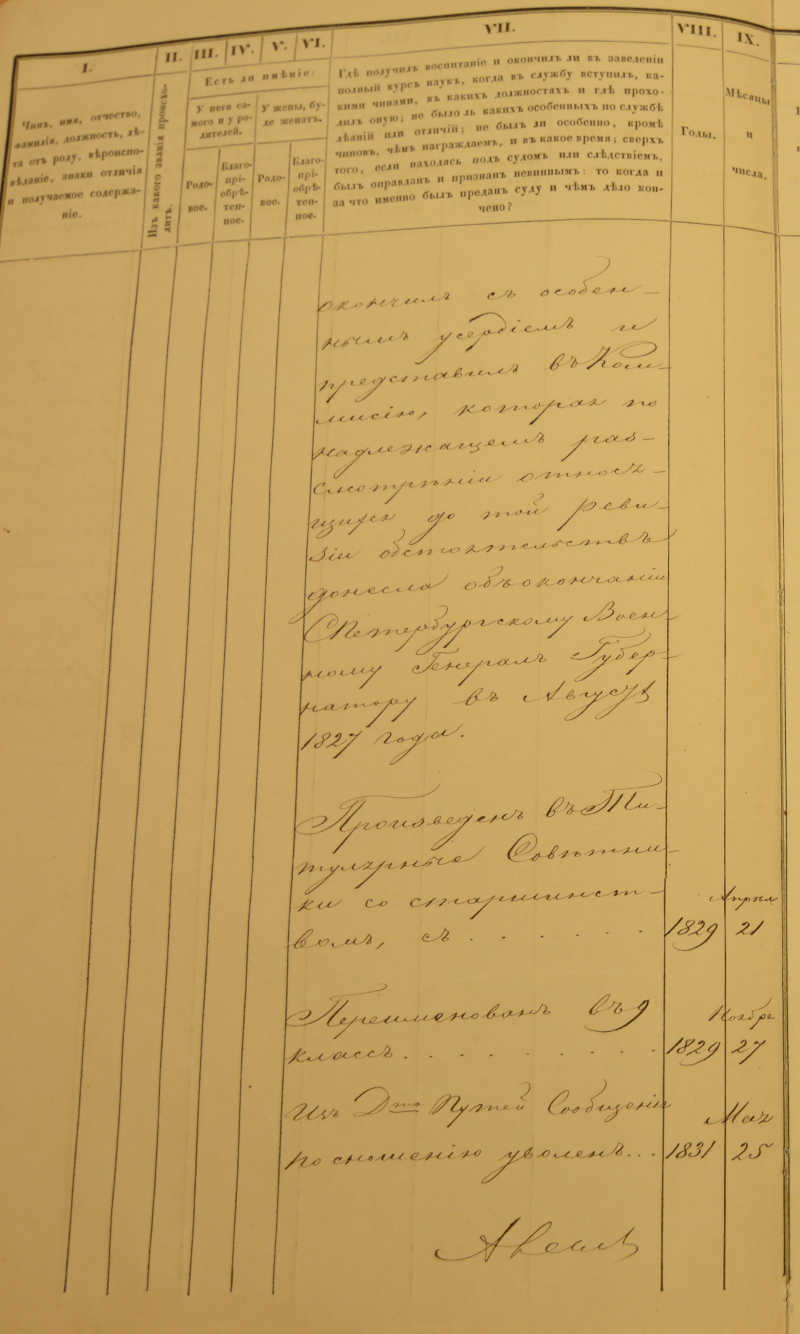 I.
II.
III.
IV.
V.
VI.
VII.
VIII.
IX.
Чинъ, имя, отчество,
фамилія, должность, лѣ-
та отъ роду, вѣроиспо-
вѣданіе, знаки отличія
и получаемое содержа-
ніе.
Изъ какого званія происхо-
дитъ.
Есть ли имѣніе:
У него са-
мого и у ро-
дителей.
У жены, бу-
де женатъ.
Родо-
вое.
Благо-
прі-
обрѣ-
тен-
ное.
Родо-
вое.
Благо-
прі-
обрѣ-
тен-
ное.
Гдѣ получилъ воспитаніе и окончилъ ли въ заведеніи
полный курсъ наукъ, когда въ службу вступилъ, ка-
кими чинами, въ какихъ должностяхъ и гдѣ прохо-
дилъ оную; не было ль какихъ особенныхъ по службѣ
дѣяній или отличій; не былъ ли особенно, кромѣ
чиновъ, чѣмъ награждаемъ, и въ какое время; сверхъ
того, если находясь подъ судомъ или слѣдствіемъ,
былъ оправданъ и признанъ невиннымъ: то когда и
за что именно былъ преданъ суду и чѣмъ дѣло кон-
чено?
Годы.
Мѣсяцы
и
числа.
окончилъ съ особен-
нымъ усердіемъ и
представилъ въ Ком-
мисію, которая по
надлежащемъ раз-
смотрѣніи относя-
щихся до той реви-
зіи обстоятельствъ
донесла объ окончаніи
СПетербургскому Воен-
ному Генералъ Губер-
натору въ Августѣ
1827 года.
Произведенъ въ Ти-
тулярные Совѣтни-
ки со старшинст-
вомъ, съ . . . . . . 1829 Апрѣля 21
Переименованъ въ 9
классъ . . . . . . . . 1829 Ноябр. 27
Изъ Дтта Путей Сообщенія
по сношенію уволенъ . . . 1831 Мая 25